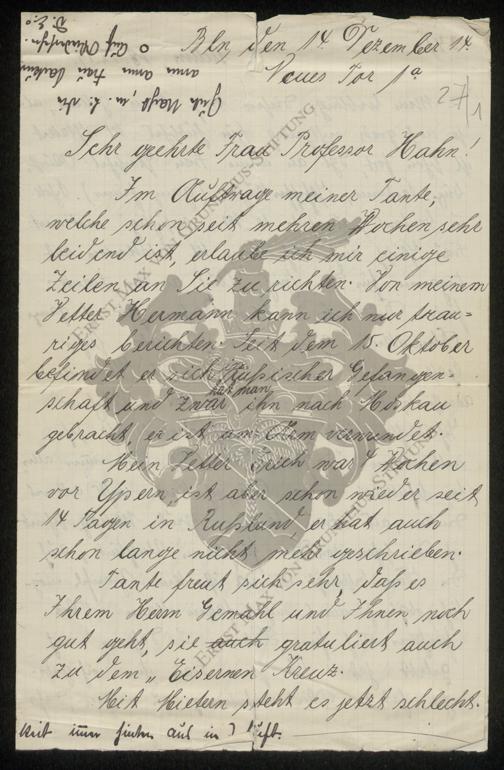 Bln, den 14. Dezember 14.
Neues Tor 1a
Sehr geehrte Frau Professor Hahn!
Im Auftrage meiner Tante,
welche schon seit mehren Wochen sehr
leidend ist, erlaube ich mir einige
Zeilen an Sie zu richten. Von meinem
Vetter Hermann kann ich nur trau-
riges berichten. Seit dem 15. Oktober
befindet er sich Russischer Gefangen-
schaft und zwar hat man ihn nach Moskau
gebracht, er ist am Arm verwundet.
Mein Vetter Erich war 4 Wochen
vor Ypern, ist aber schon wieder seit
14 Tagen in Rußland, er hat auch
schon lange nicht mehr geschrieben.
Tante freut sich sehr, daß es
Ihrem Herrn Gemahl und Ihnen noch
gut geht, sie auch gratuliert auch
zu dem „Eisernen Kreuz.
Mit Mietern steht es jetzt schlecht.
ERNST-MAX VON GRUNELIUS-STIFTUNG
ERNST-MAX VON GRUNELIUS-STIFTUNG